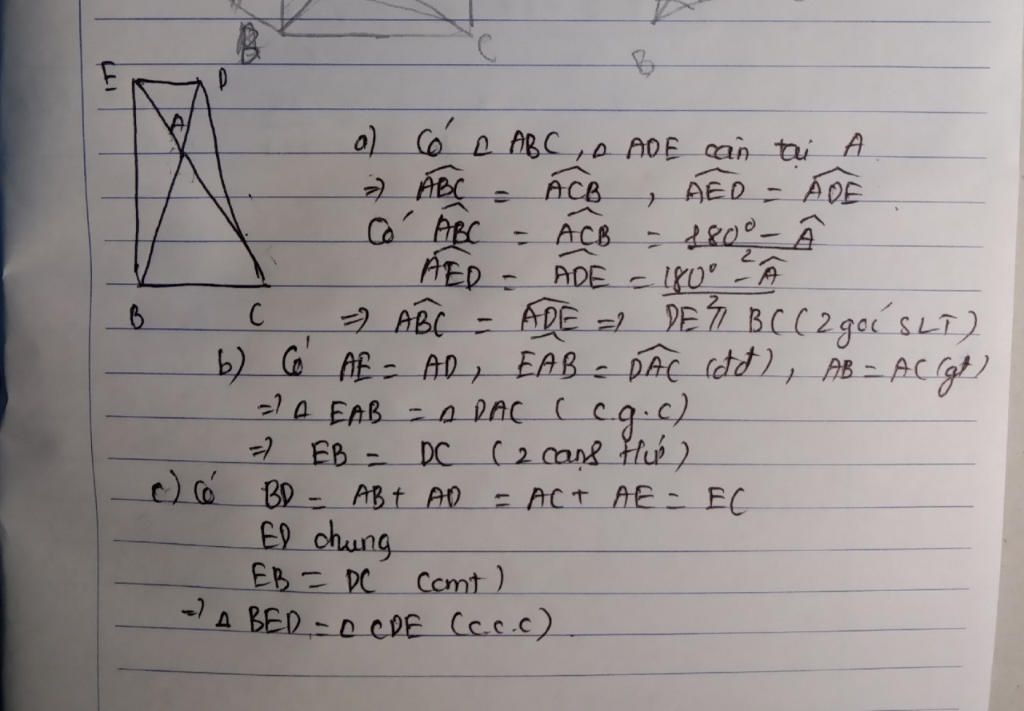 B C B
E D
A
B C
a) Có Δ ABC, Δ ADE cân tại A
=> ABC^ = ACB^ , AED^ = ADE^
Có ABC^ = ACB^ = (180° - A^)/2
AED^ = ADE^ = (180° - A^)/2
=> ABC^ = ADE^ => DE // BC (2 goć SLT)
b) Có AE = AD, EAB^ = DAC^ (đđ), AB = AC (gt)
=> Δ EAB = Δ DAC (c.g.c)
=> EB = DC (2 cạnh tứ)
c) Có BD = AB + AD = AC + AE = EC
ED chung
EB = DC (cmt)
=> Δ BED = Δ CDE (c.c.c).